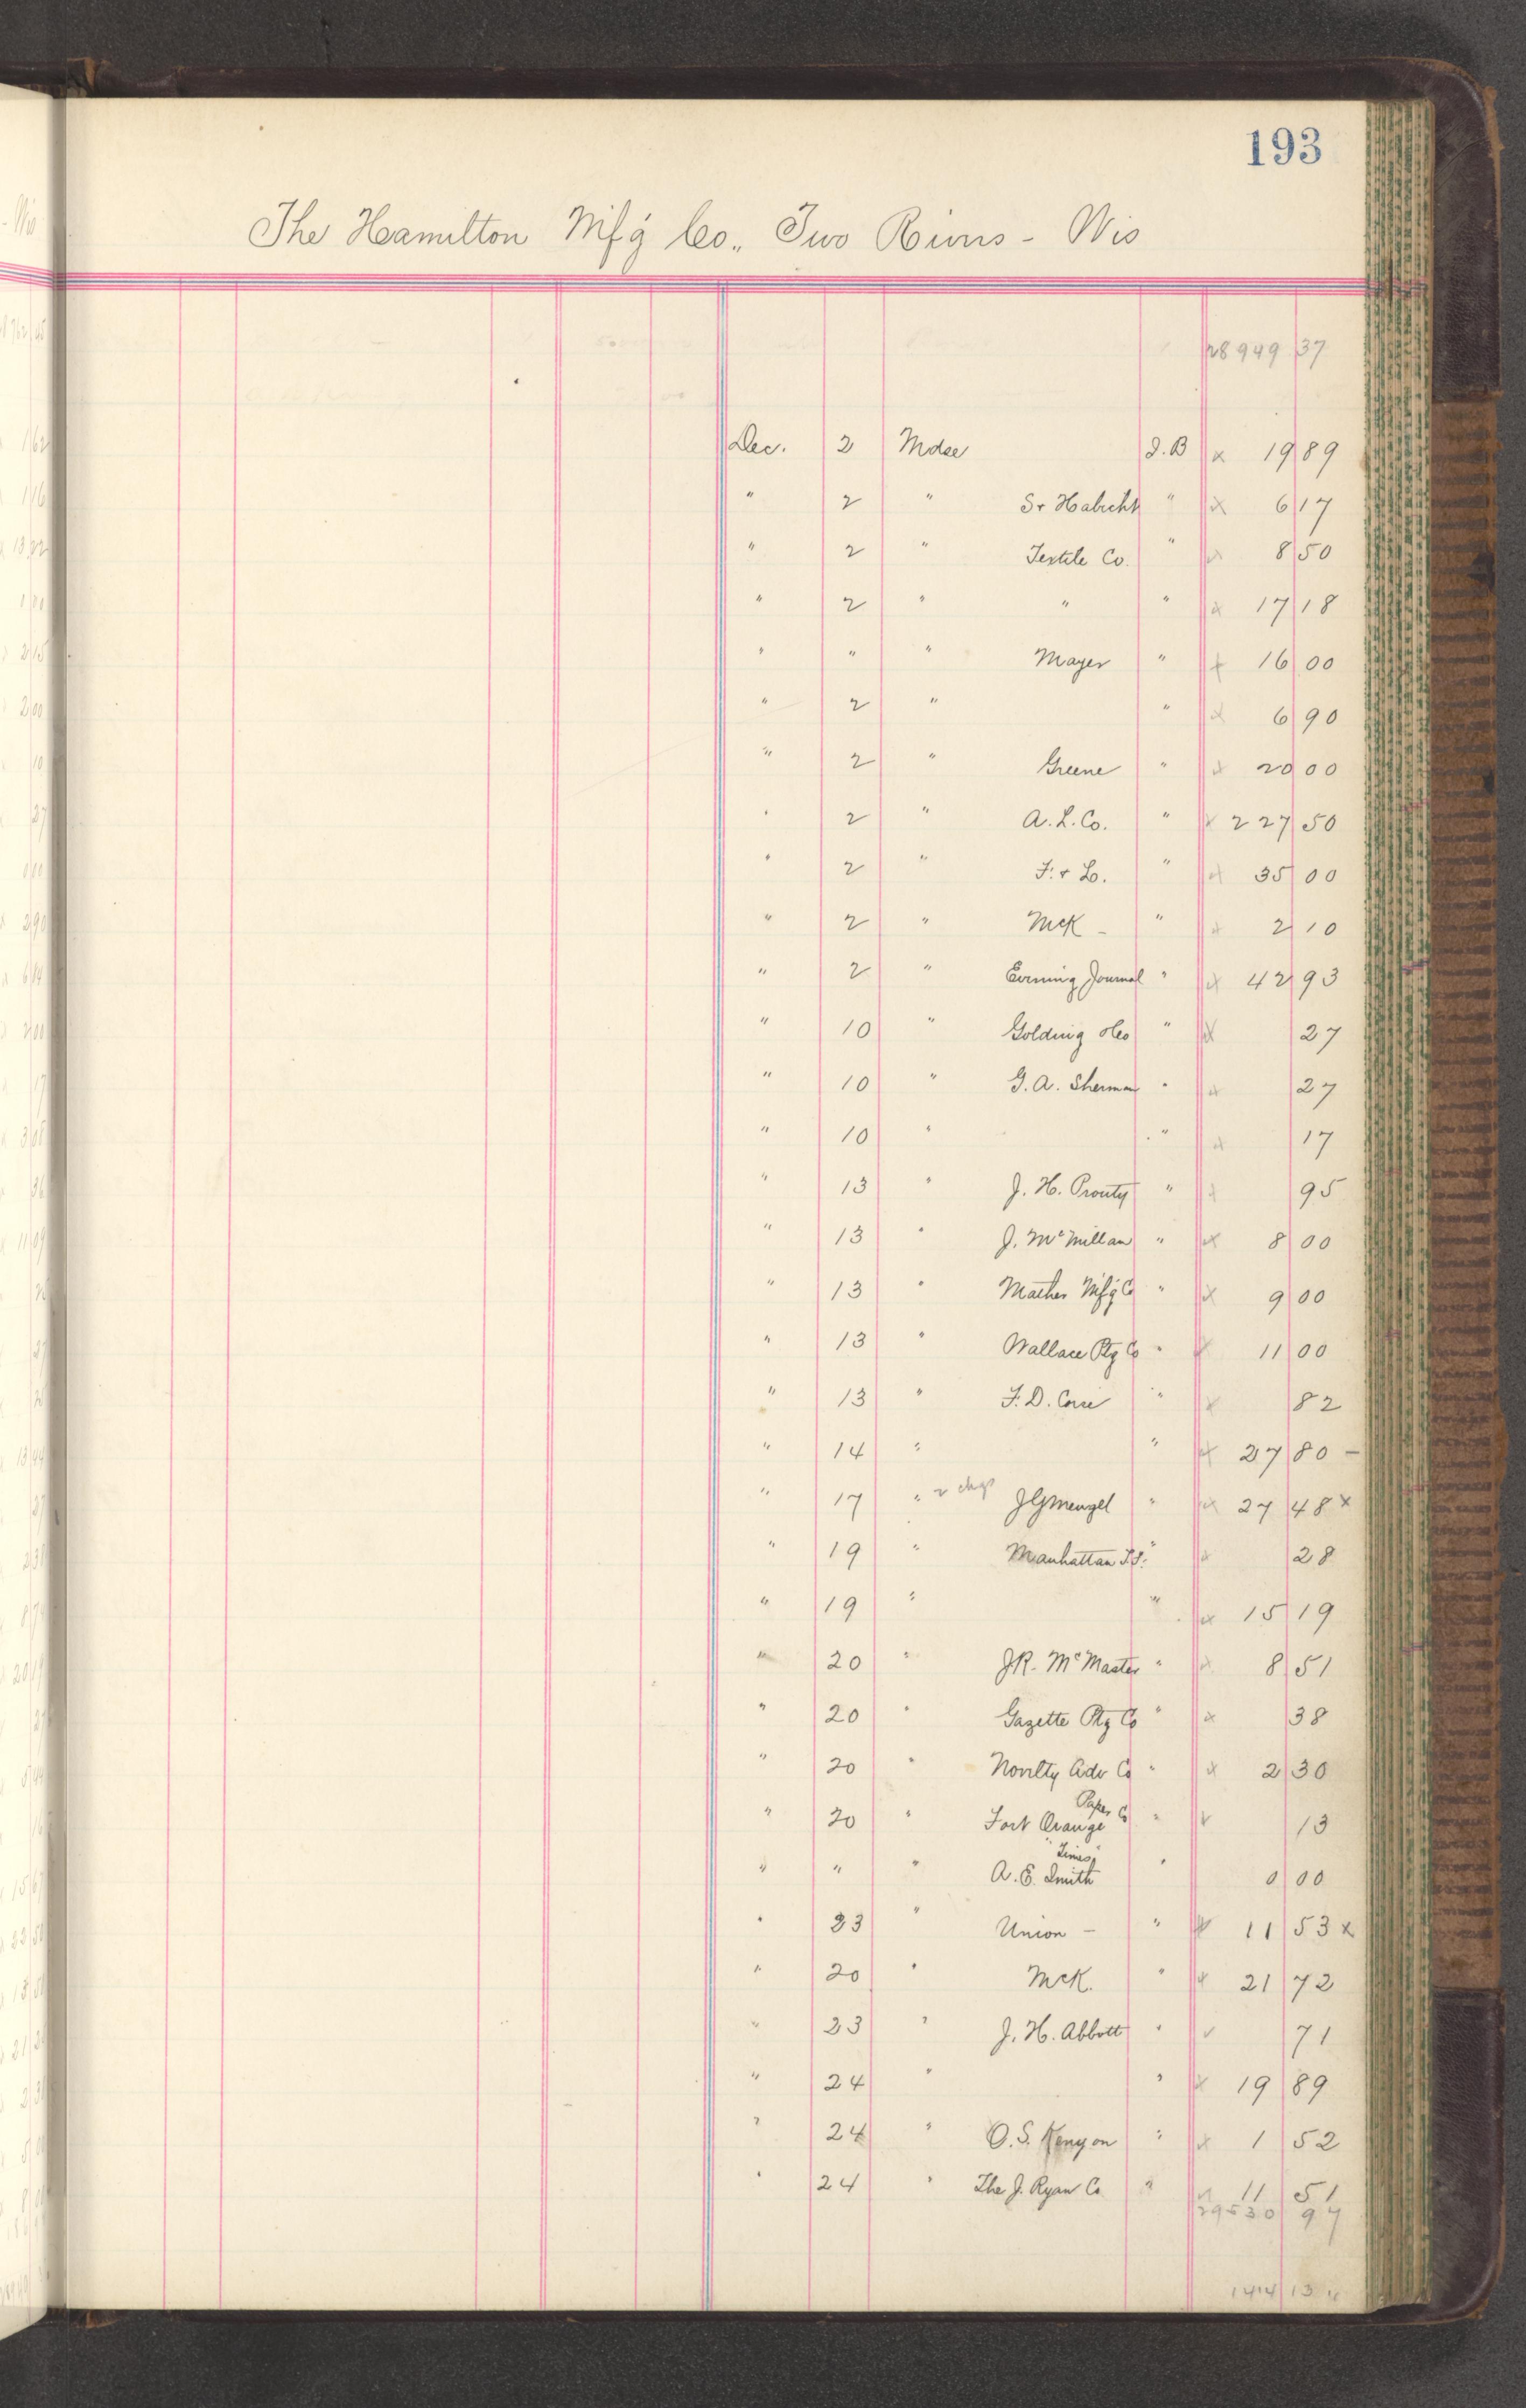 193
The Hamilton Mf'g Co., Two Rivers - Wis
28949 37
Dec. 2 Mdse J.B x 19 89
" 2 " S + Habicht " x 6 17
" 2 " Textile Co. " x 8 50
" 2 " " " x 17 18
" " " Mayer " x 16 00
" 2 " " x 6 90
" 2 " Greene " x 20 00
" 2 " A. L. Co. " x 227 50
" 2 " F. + L. " x 35 00
" 2 " McK - " x 2 10
" 2 " Evening Journal " x 42 93
" 10 " Golding & Co " x 27
" 10 " G. A. Sherman " x 27
" 10 " " x 17
" 13 " J. H. Prouty " x 95
" 13 " J. McMillan " x 8 00
" 13 " Mather Mf'g Co " x 9 00
" 13 " Wallace Ptg Co " x 11 00
" 13 " F. D. " x 82
" 14 " " x 27 80 -
" 17 " 2 chgs J G Mengel " x 27 48 x
" 19 " Manhattan " x 28
" 19 " " x 15 19
" 20 " J R. McMaster " x 8 51
" 20 " Gazette Ptg Co " x 38
" 20 " Novelty Adv Co " x 2 30
" 20 " Fort Orange Paper Co " x 13
" " " A. E. Smith "Times" " 0 00
" 23 " Union - " x 11 53 x
" 20 " McK. " x 21 72
" 23 " J. H. Abbott " x 71
" 24 " " x 19 89
" 24 " O. S. Kenyon " x 1 52
" 24 " The J. Ryan Co " x 11 51
29530 97
1414 13